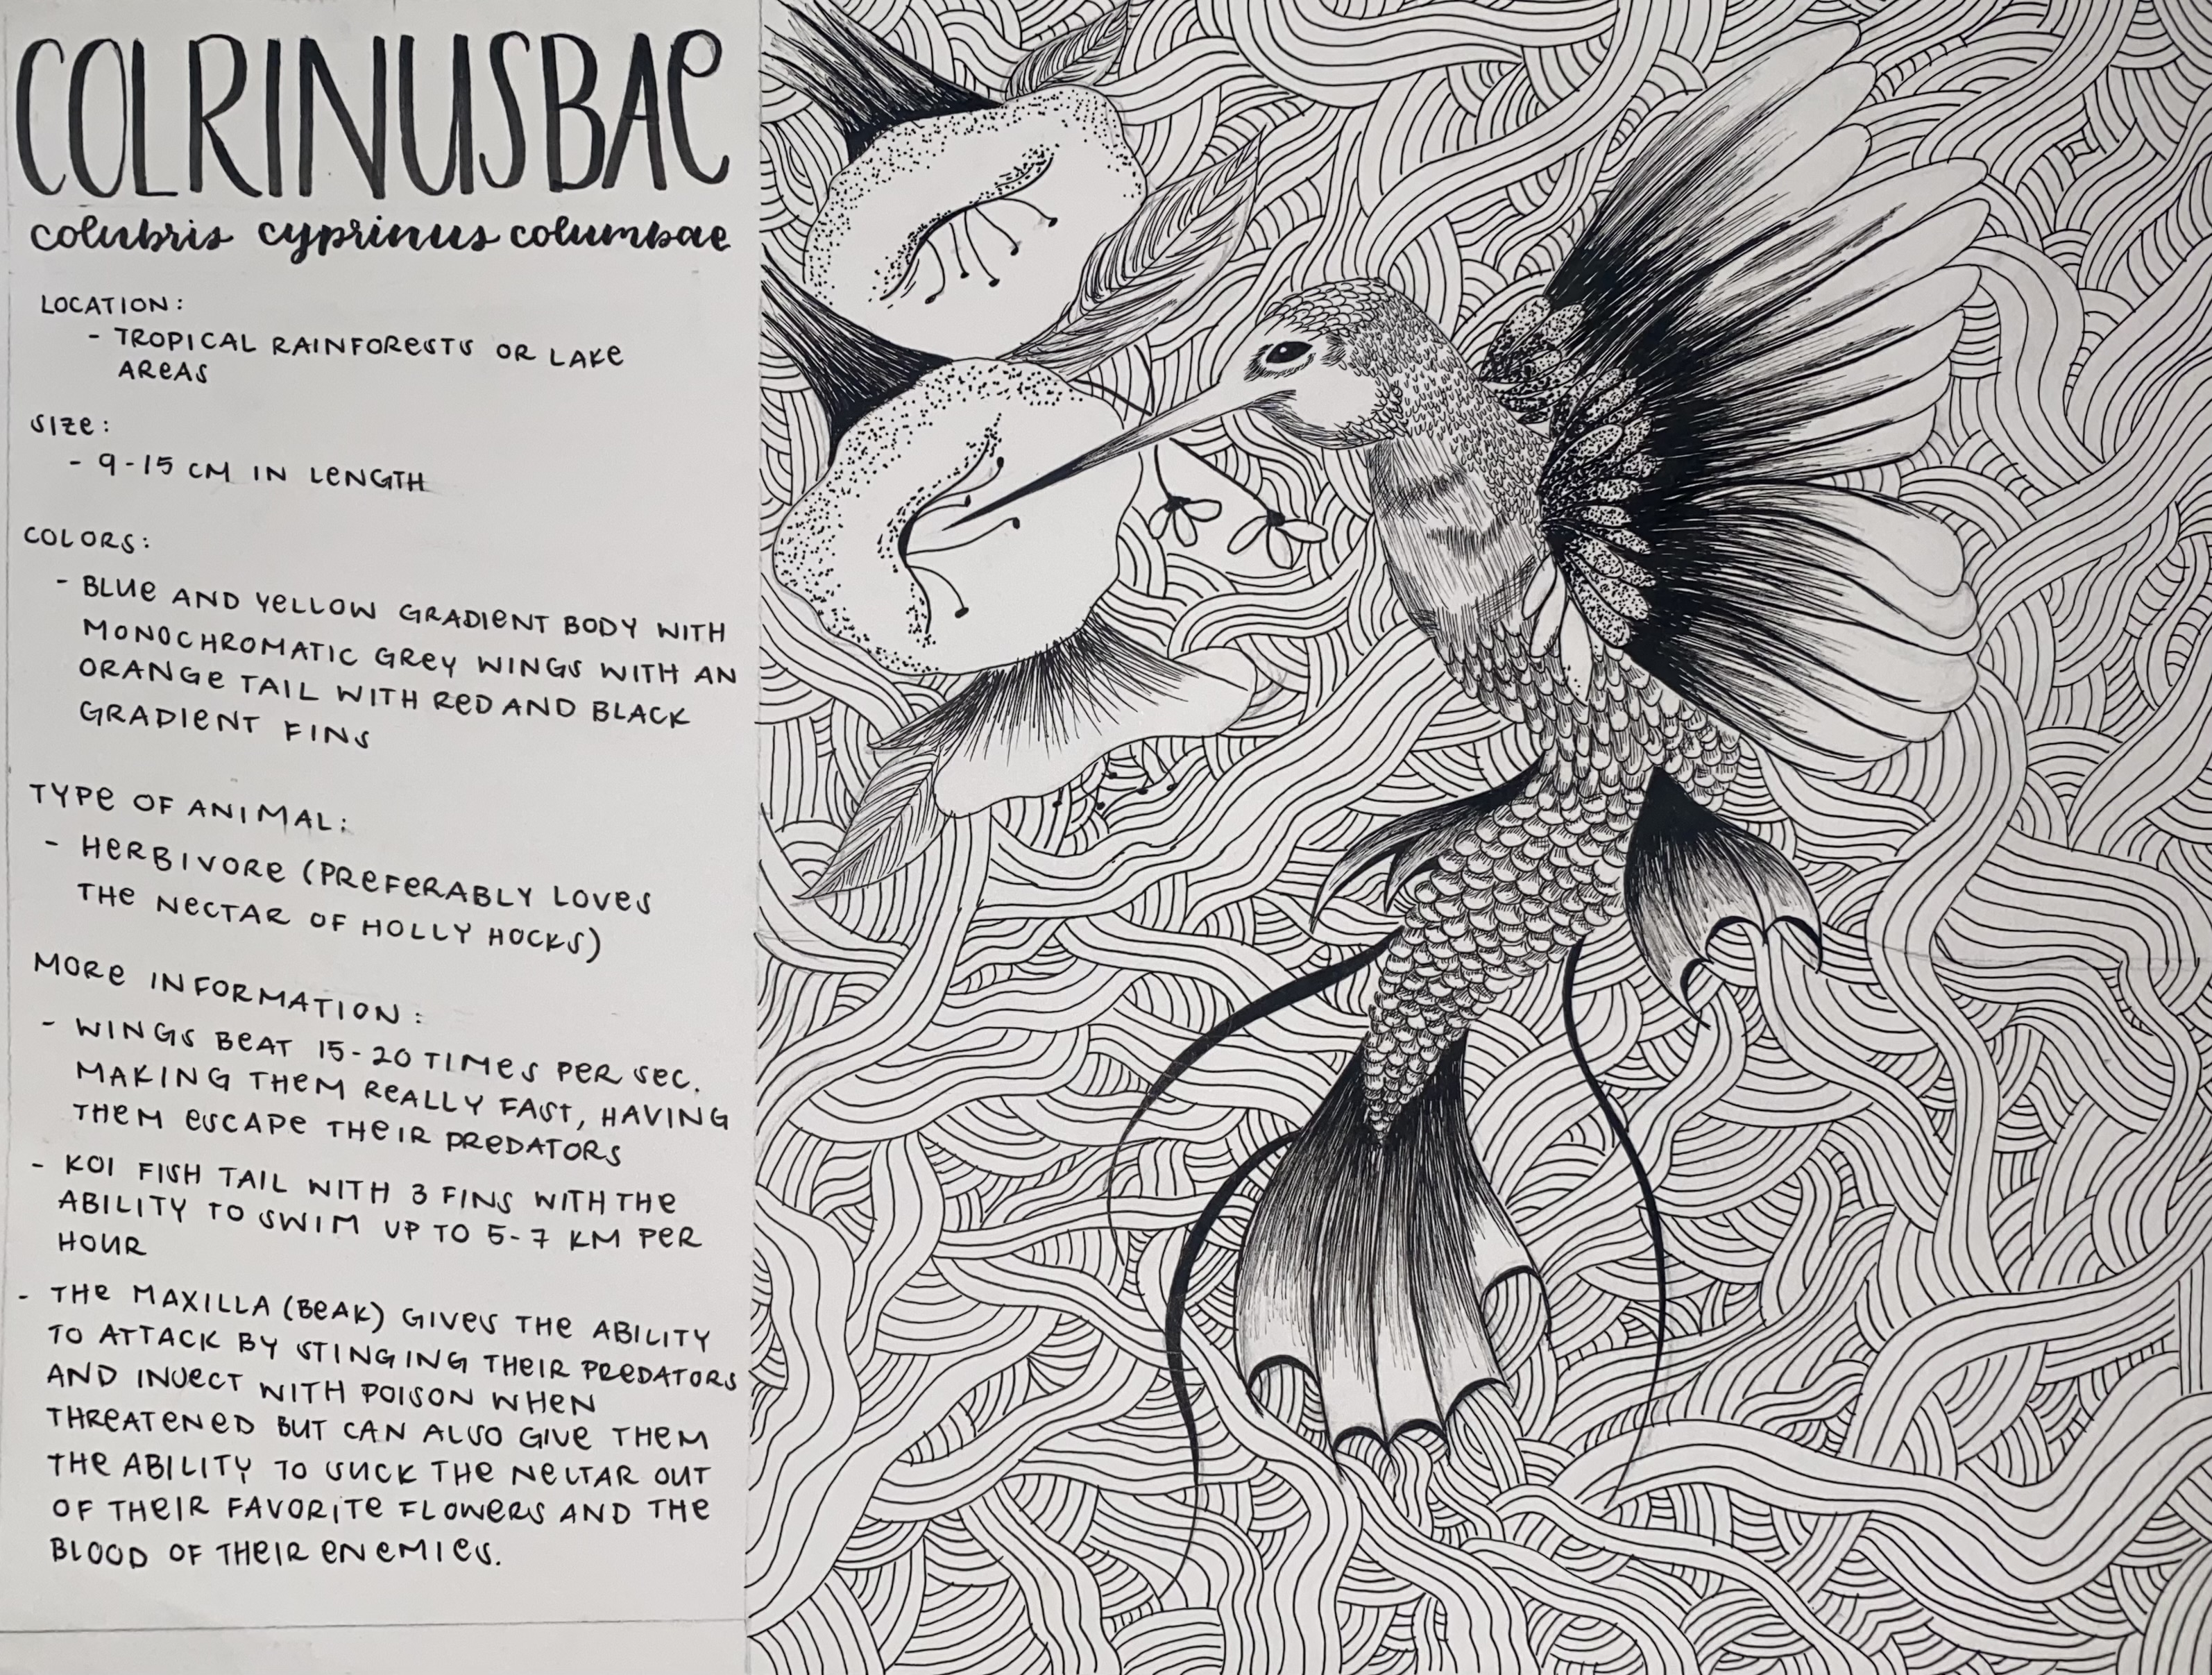 COLRINUSBAE
colubris cyprinus columbae
LOCATION:
- TROPICAL RAINFORESTS OR LAKE
AREAS
SIZE:
- 9-15 CM IN LENGTH
COLORS:
- BLUE AND YELLOW GRADIENT BODY WITH
MONOCHROMATIC GREY WINGS WITH AN
ORANGE TAIL WITH RED AND BLACK
GRADIENT FINS
TYPE OF ANIMAL:
- HERBIVORE (PREFERABLY LOVES
THE NECTAR OF HOLLY HOCKS)
MORE INFORMATION:
- WINGS BEAT 15-20 TIMES PER SEC.
MAKING THEM REALLY FAST, HAVING
THEM ESCAPE THEIR PREDATORS
- KOI FISH TAIL WITH 3 FINS WITH THE
ABILITY TO SWIM UP TO 5-7 KM PER
HOUR
- THE MAXILLA (BEAK) GIVES THE ABILITY
TO ATTACK BY STINGING THEIR PREDATORS
AND INJECT WITH POISON WHEN
THREATENED BUT CAN ALSO GIVE THEM
THE ABILITY TO SUCK THE NECTAR OUT
OF THEIR FAVORITE FLOWERS AND THE
BLOOD OF THEIR ENEMIES.